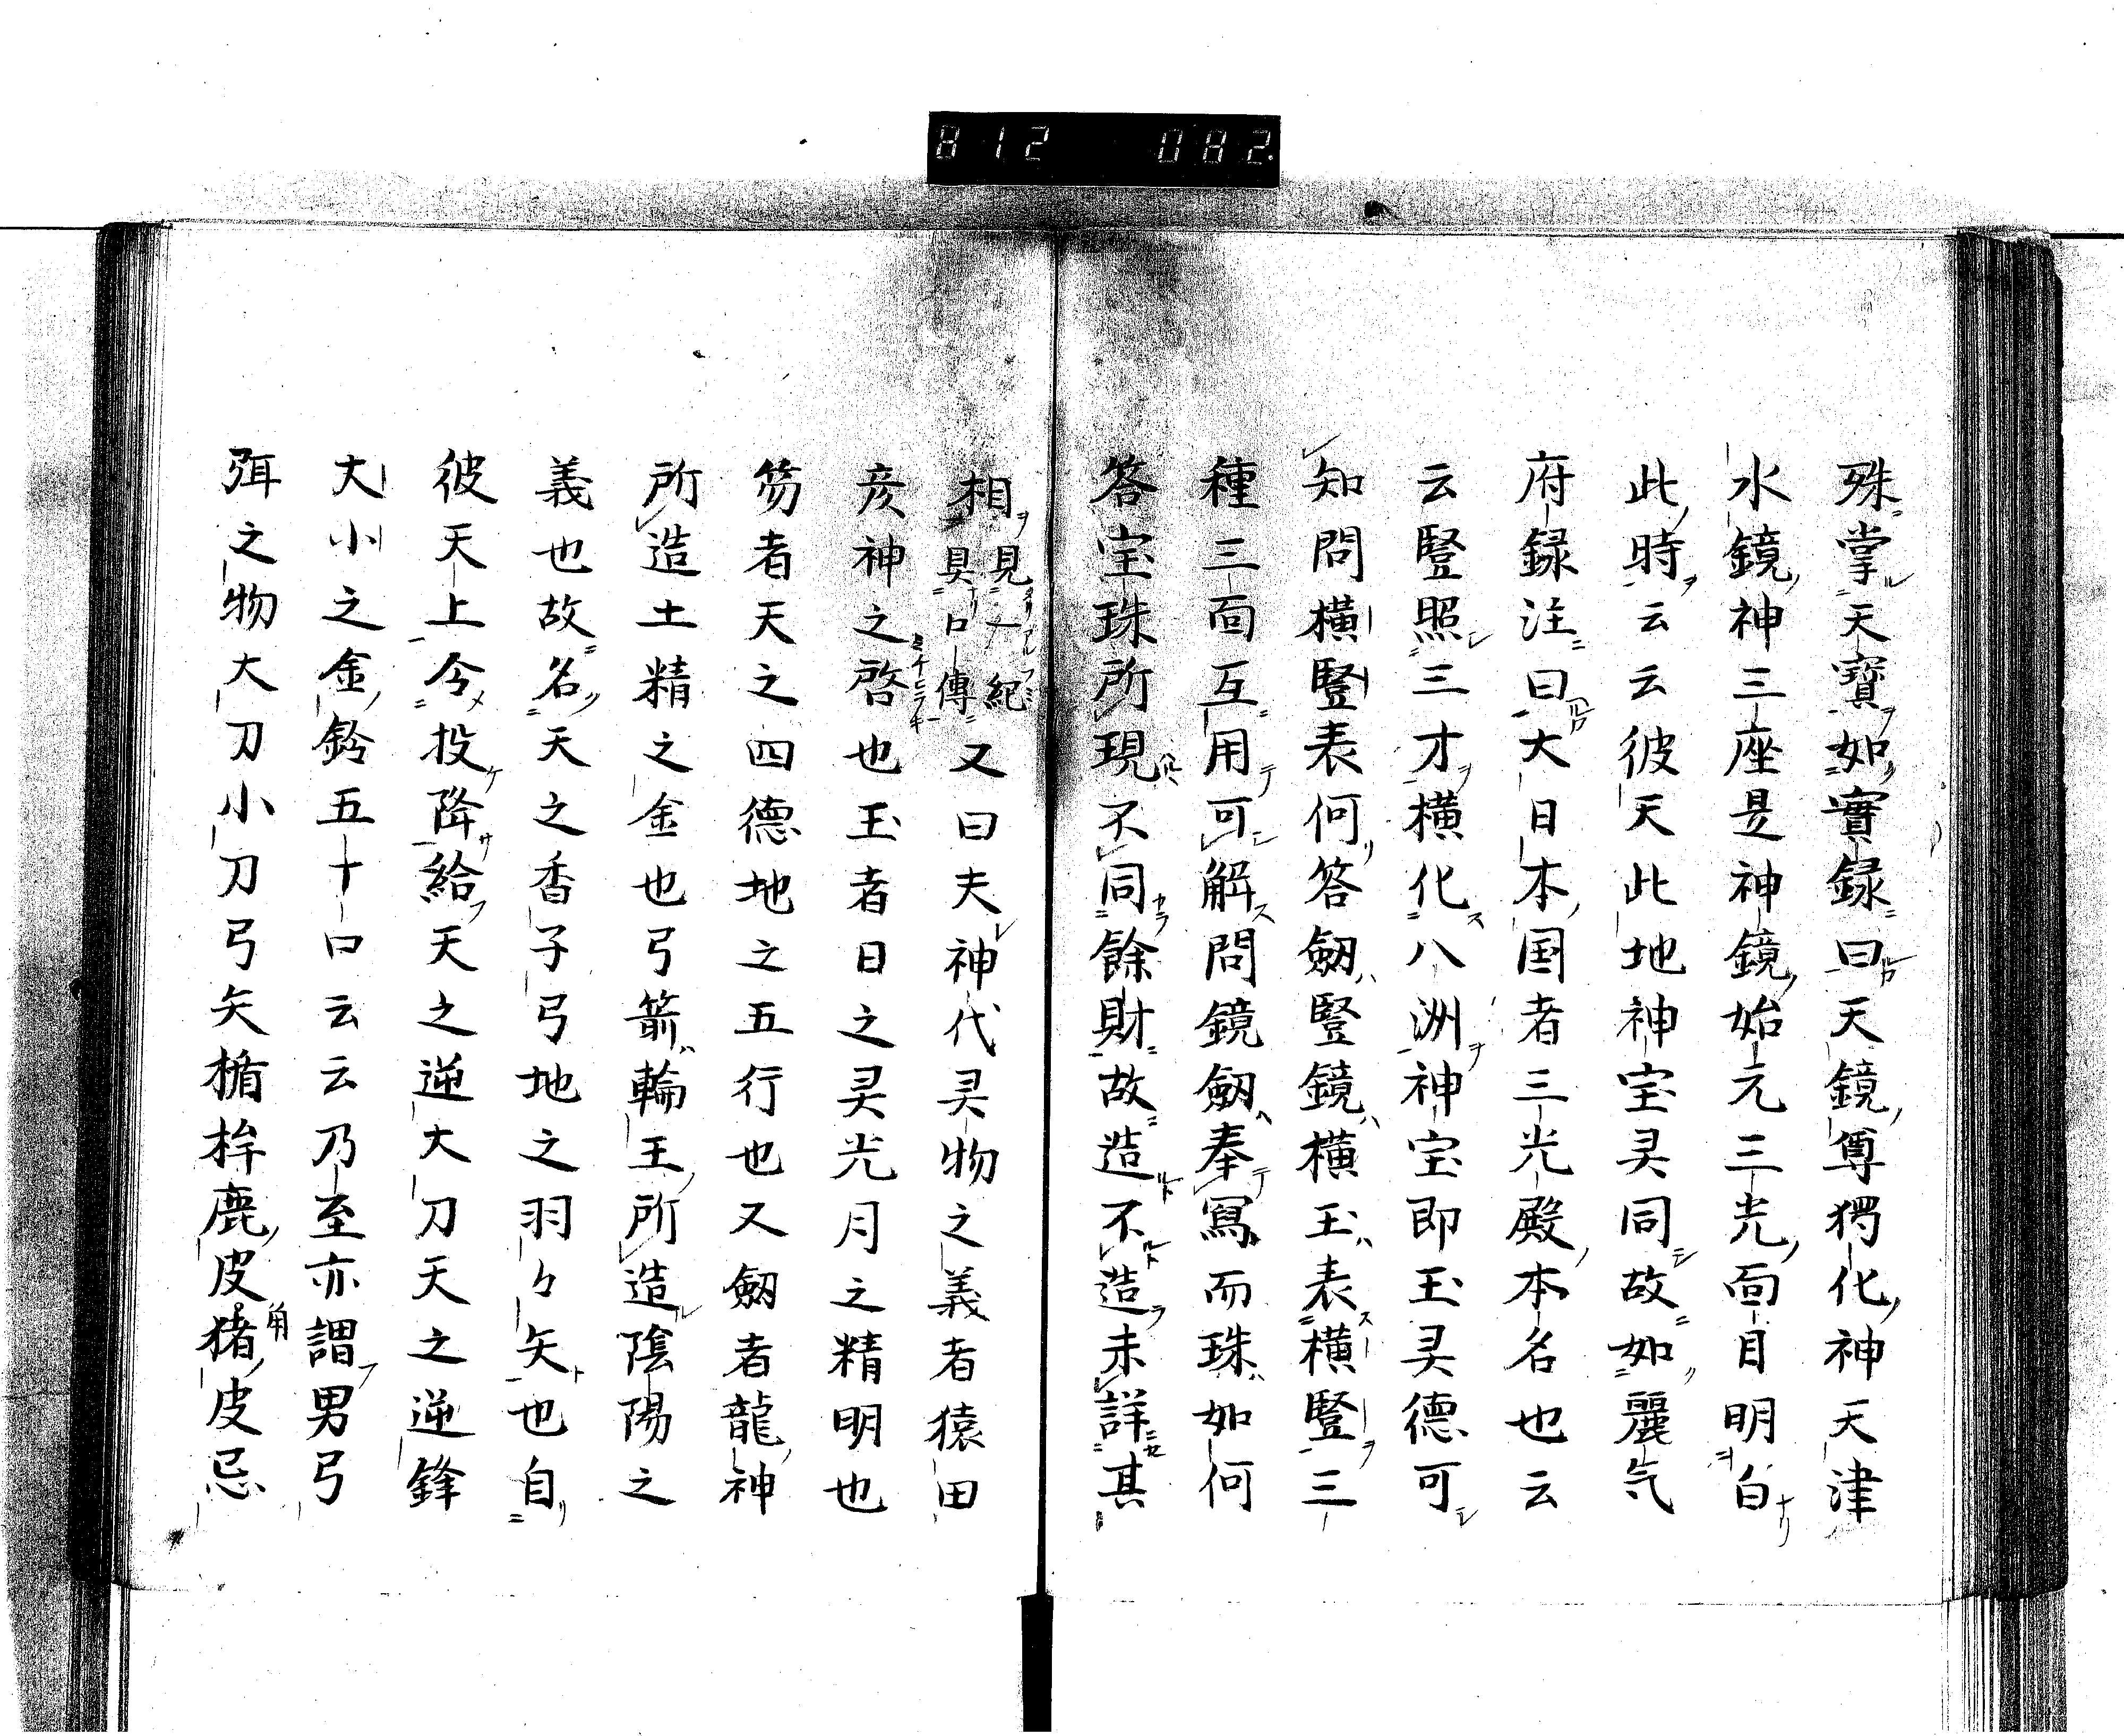 812 082
殊掌天寶如實録曰天鏡尊獨化神天津
水鏡神三座是神鏡始元三光面目明白
此時云云彼天此地神宝灵同故如麗气
府録注曰大日本国者三光殿本名也云
云竪照三才横化八洲神宝即玉灵德可
知問横竪表何答剱竪鏡横玉表横竪三
種三面互用可解問鏡剱奉寫而珠如何
答宝珠所現不同餘財故造不造未詳其
相見一紀具口傳又曰夫神代灵物之義者猿田
彦神之啓也玉者日之灵光月之精明也
笏者天之四德地之五行也又剱者龍神
所造土精之金也弓箭輪王所造陰陽之
義也故名天之香子弓地之羽々矢也自
彼天上令投降給天之逆大刀天之逆鋒
大小之金鈴五十口云云乃至亦謂男弓
弭之物大刀小刀弓矢楯桙鹿皮角猪皮忌